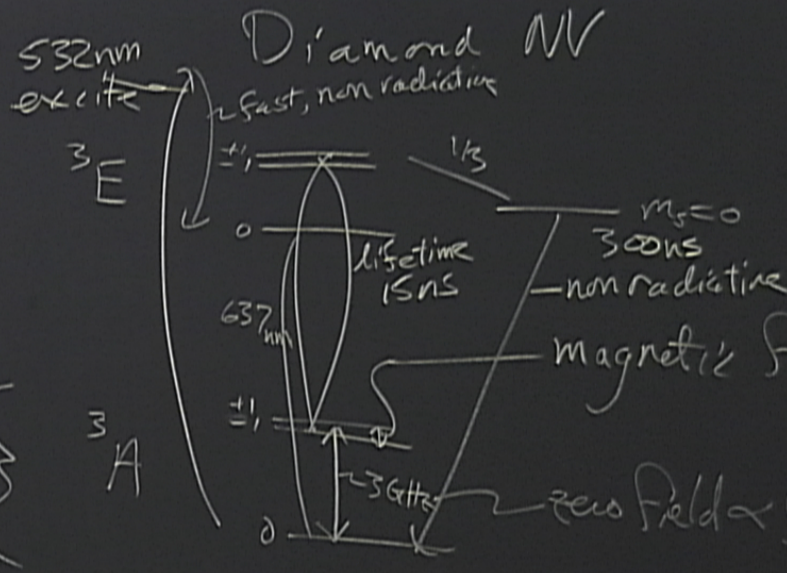 Diamond NV
532nm
excite
~fast, non radiative
³E
±1
1/3
0
mₛ=0
300ns
lifetime
15ns
non radiative
637
nm
magnetic f
±1
³A
~3GHz
zero field
0